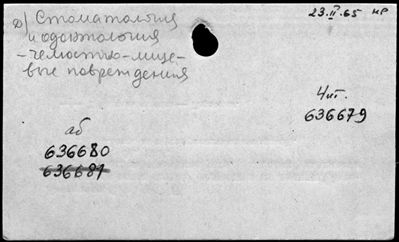 д) Стоматология
и одонтология
- челюстно-лице-
вые повреждения
23.II.65 нр
чит.
636679
аб
636680
636681